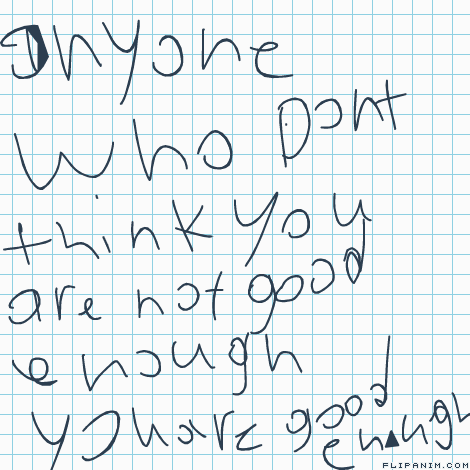 anyone
who dont
think you
are not good
enough
you are good
enough
FLIPANIM.COM